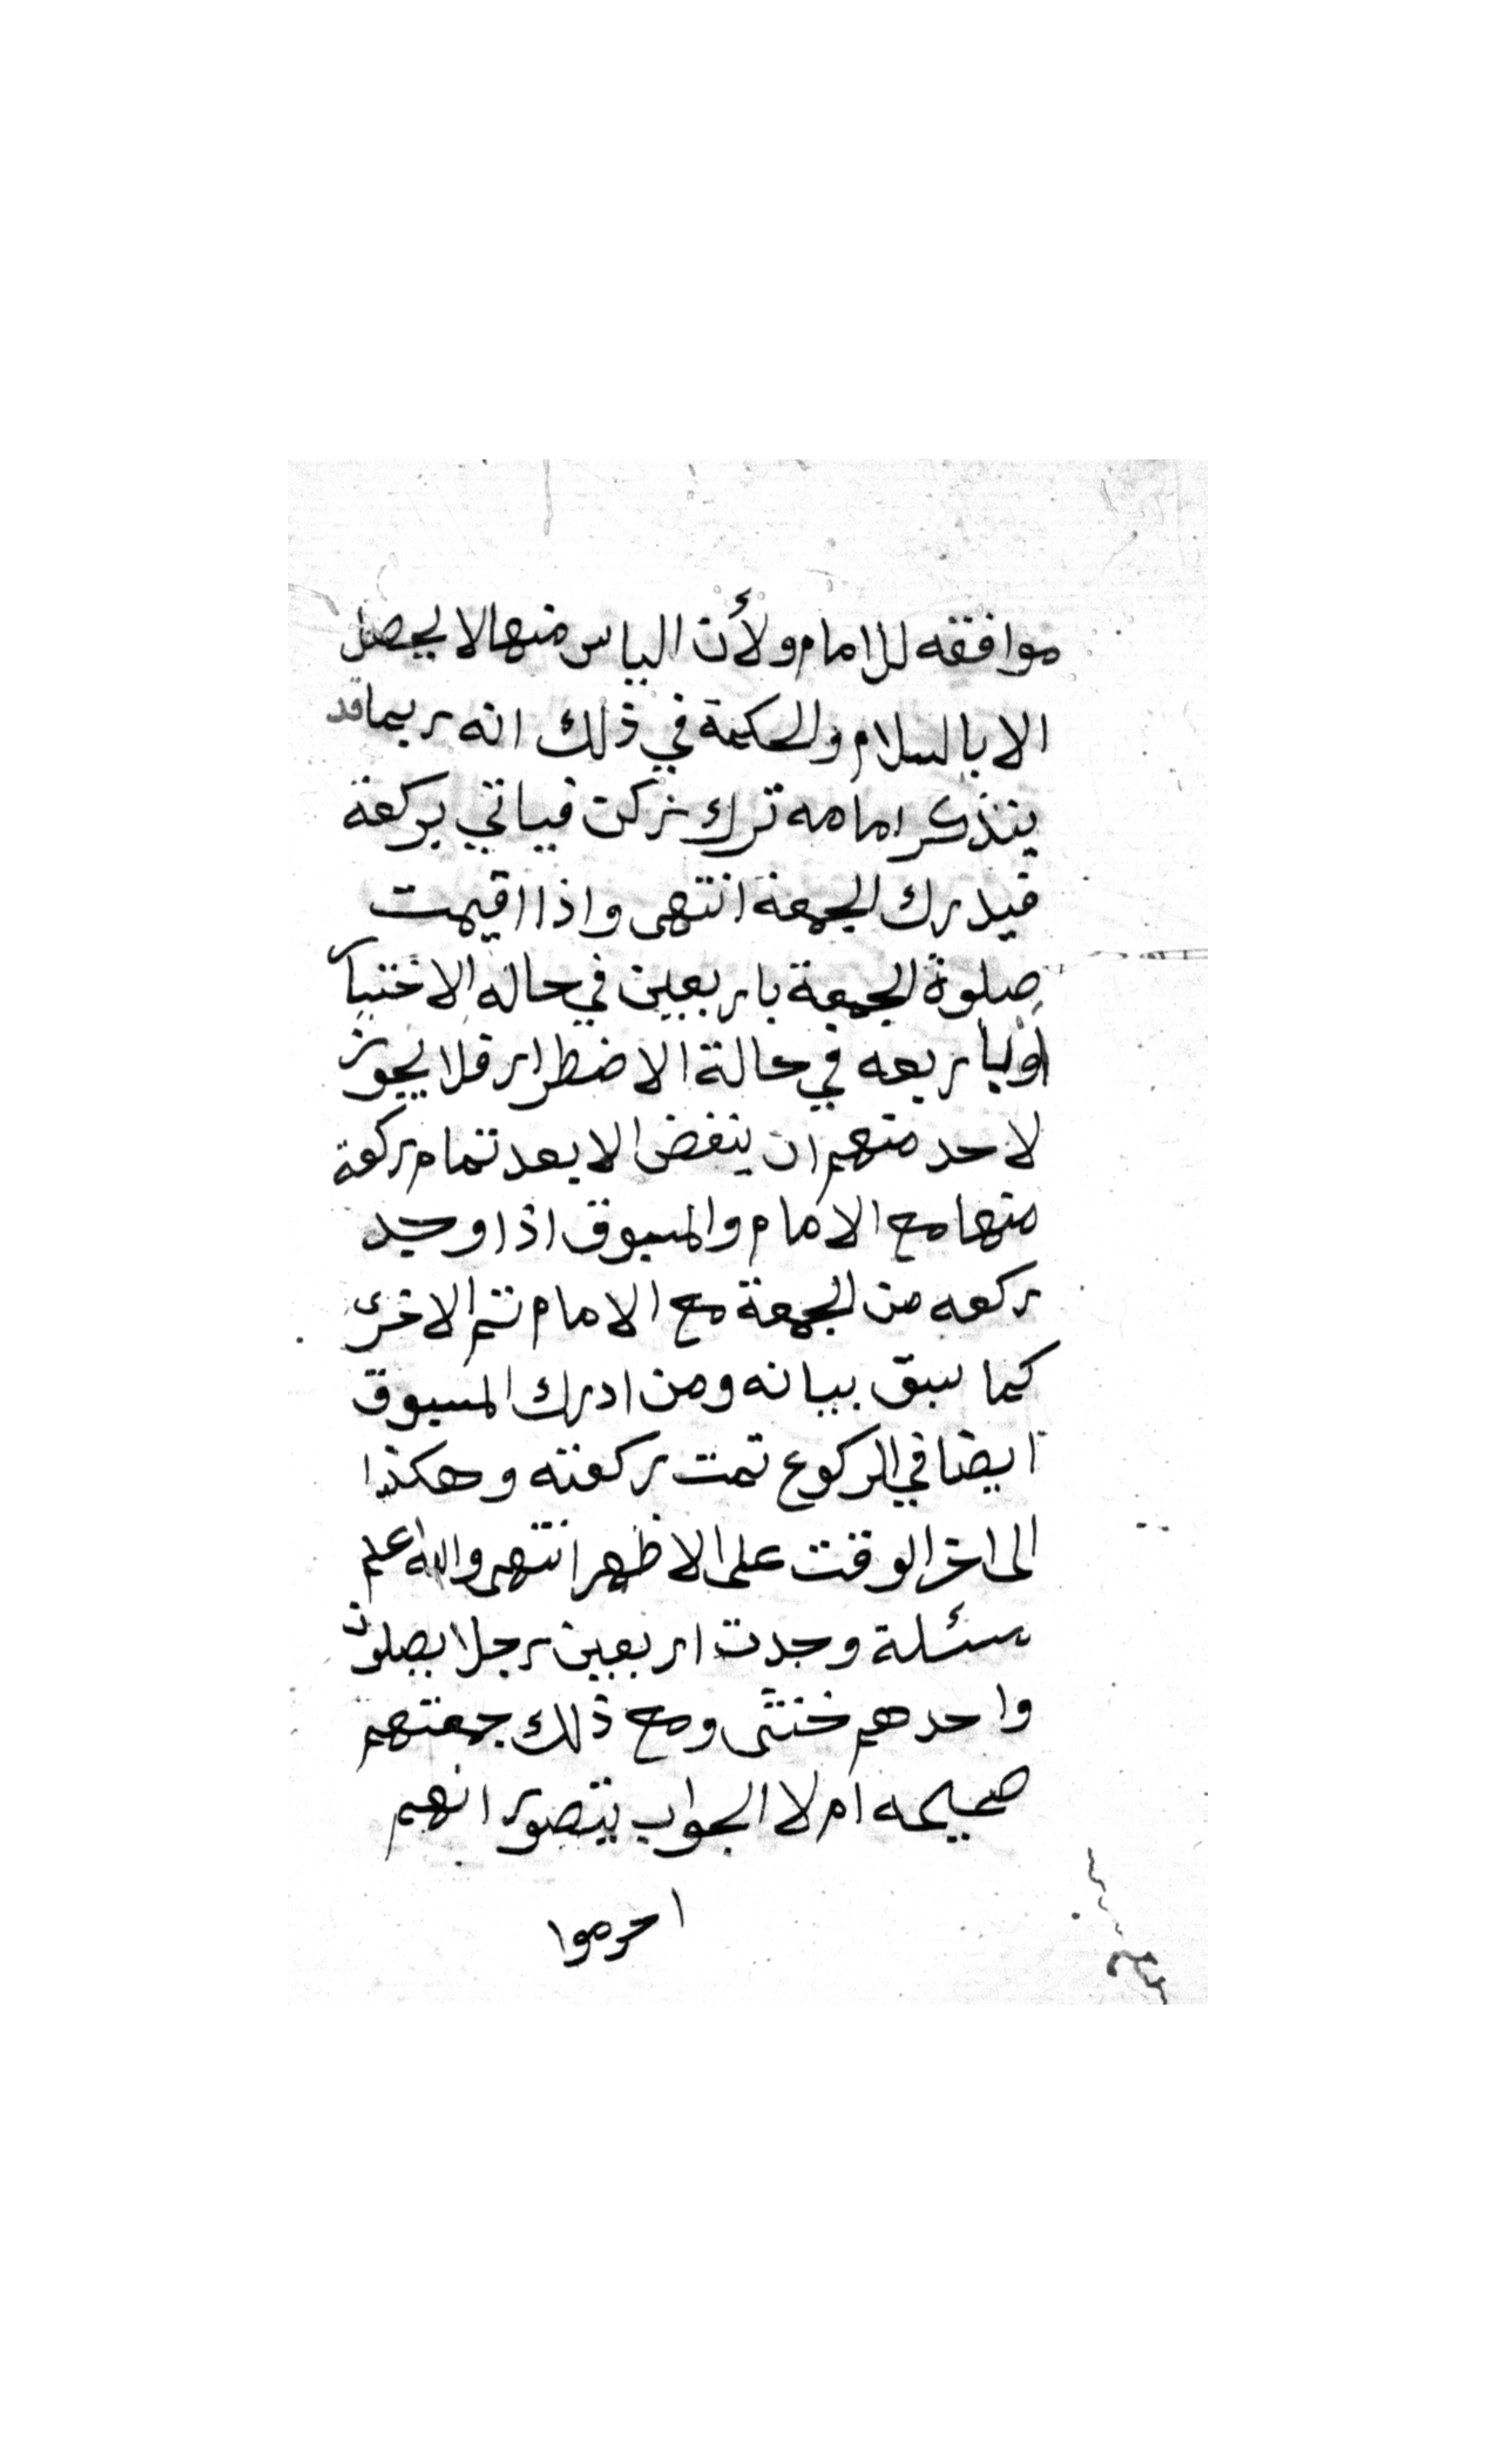 موافقه للامام ولأن الياس منها لا يحصل
الا بالسلام والحكمة في ذلك انه ربما قد
يتذكر امامه ترك ركن فياتي بركعة
فيدرك الجمعة انتهى واذا اقيمت
صلوة الجمعة باربعين في حالة الاختيا
او باربعه في حالة الاضطرار فلا يجوز
لاحد منهم ان ينفض الا بعد تمام ركعة
منها مع الامام والمسبوق اذا وجد
ركعه من الجمعة مع الامام تتم الاخرى
كما سبق بيانه ومن ادرك المسبوق
ايضا في الركوع تمت ركعته وهكذا
الى اخر الوقت على الاظهر انتهى والله اعلم
مسئلة وجدت اربعين رجلا يصلون
واحدهم خنثى ومع ذلك جمعتهم
صحيحه ام لا الجواب يتصور انهم
احرموا